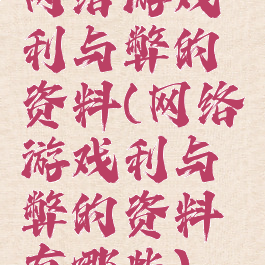 网络游戏
利与弊的
资料(网络
游戏利与
弊的资料
有哪些)